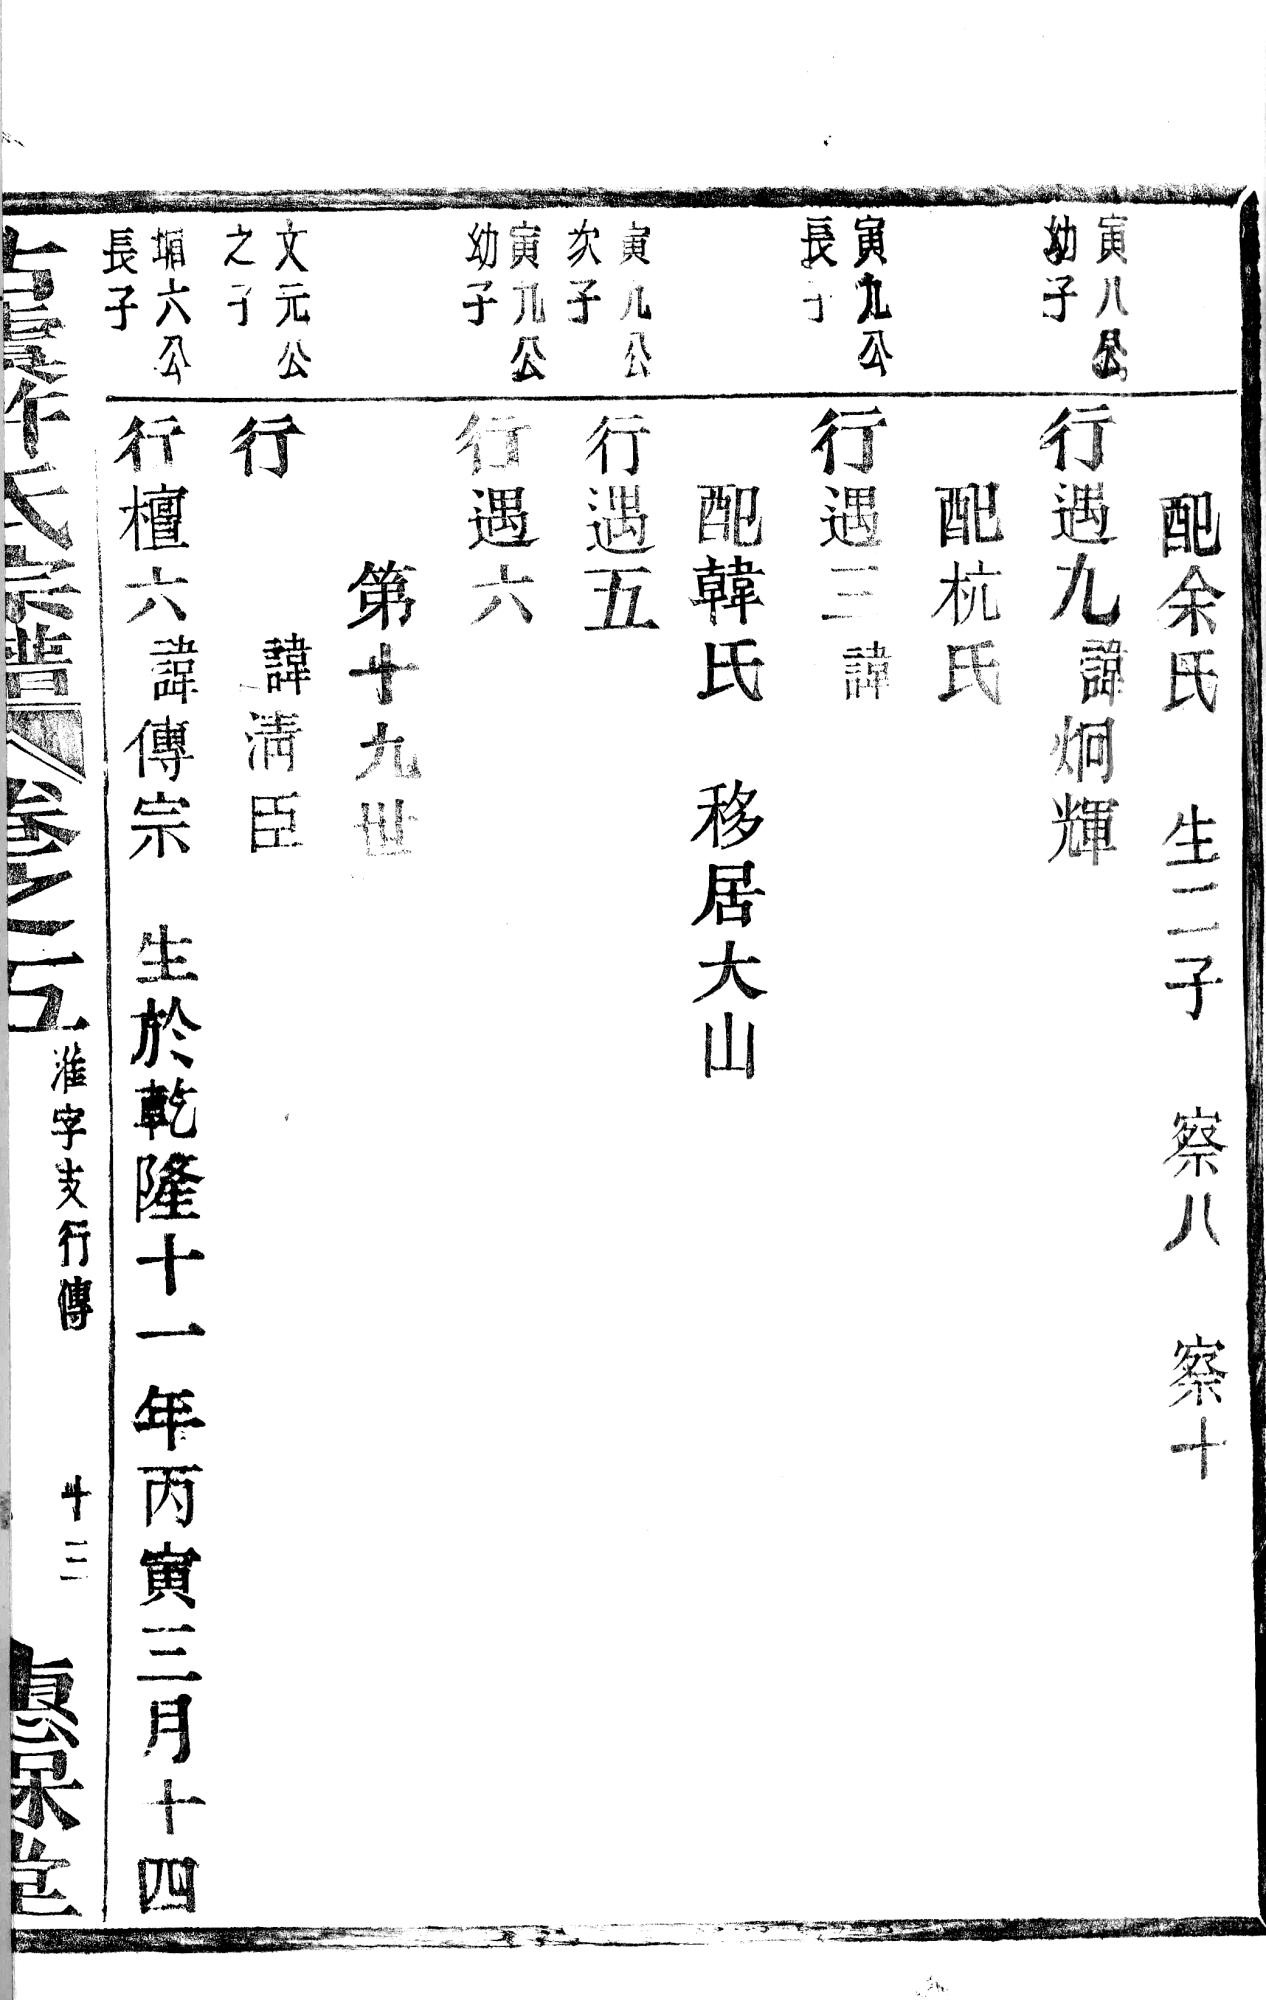 配余氏　生二子　察八　察十
寅八公
幼子
行遇九諱炯輝
配杭氏
寅九公
長子
行遇三諱
配韓氏　移居大山
寅九公
次子
行遇五
寅九公
幼子
行遇六
第十九世
文元公
之子
行　諱清臣
六公
長子
行檀六諱傳宗　生於乾隆十一年丙寅三月十四
古虞許氏宗譜　卷之五　淮字支行傳　十三　惠保堂